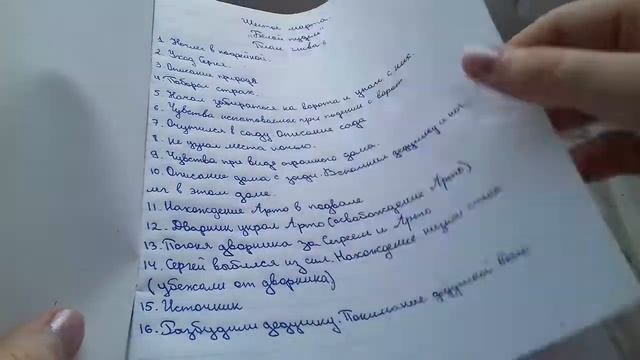 Шестое марта.
"Белый пудель"
План глава 6
1. Ночлег в кофейной.
2. Уход Сергея.
3. Описание природы
4. Поборол страх.
5. Начал забираться на ворота и упал с них.
6. Чувства испытоваемые при подъим с ворот
7. Очутился в саду. Описание сада
8. Не узнал места ночью.
9. Чувства при виде огромного дома.
10. Описание дома с зади. Вспомнил дедушку и
в этом доме.
11. Нахождение Арто в подвале
12. Дворник украл Арто (освабождение Арто)
13. Погоня дворника за Сергеем и Арто
14. Сергей выбился из сил. Нахождение низкой стены
(убежали от дворника)
15. Источник
16. Разбудили дедушку. Понимание дедушкой